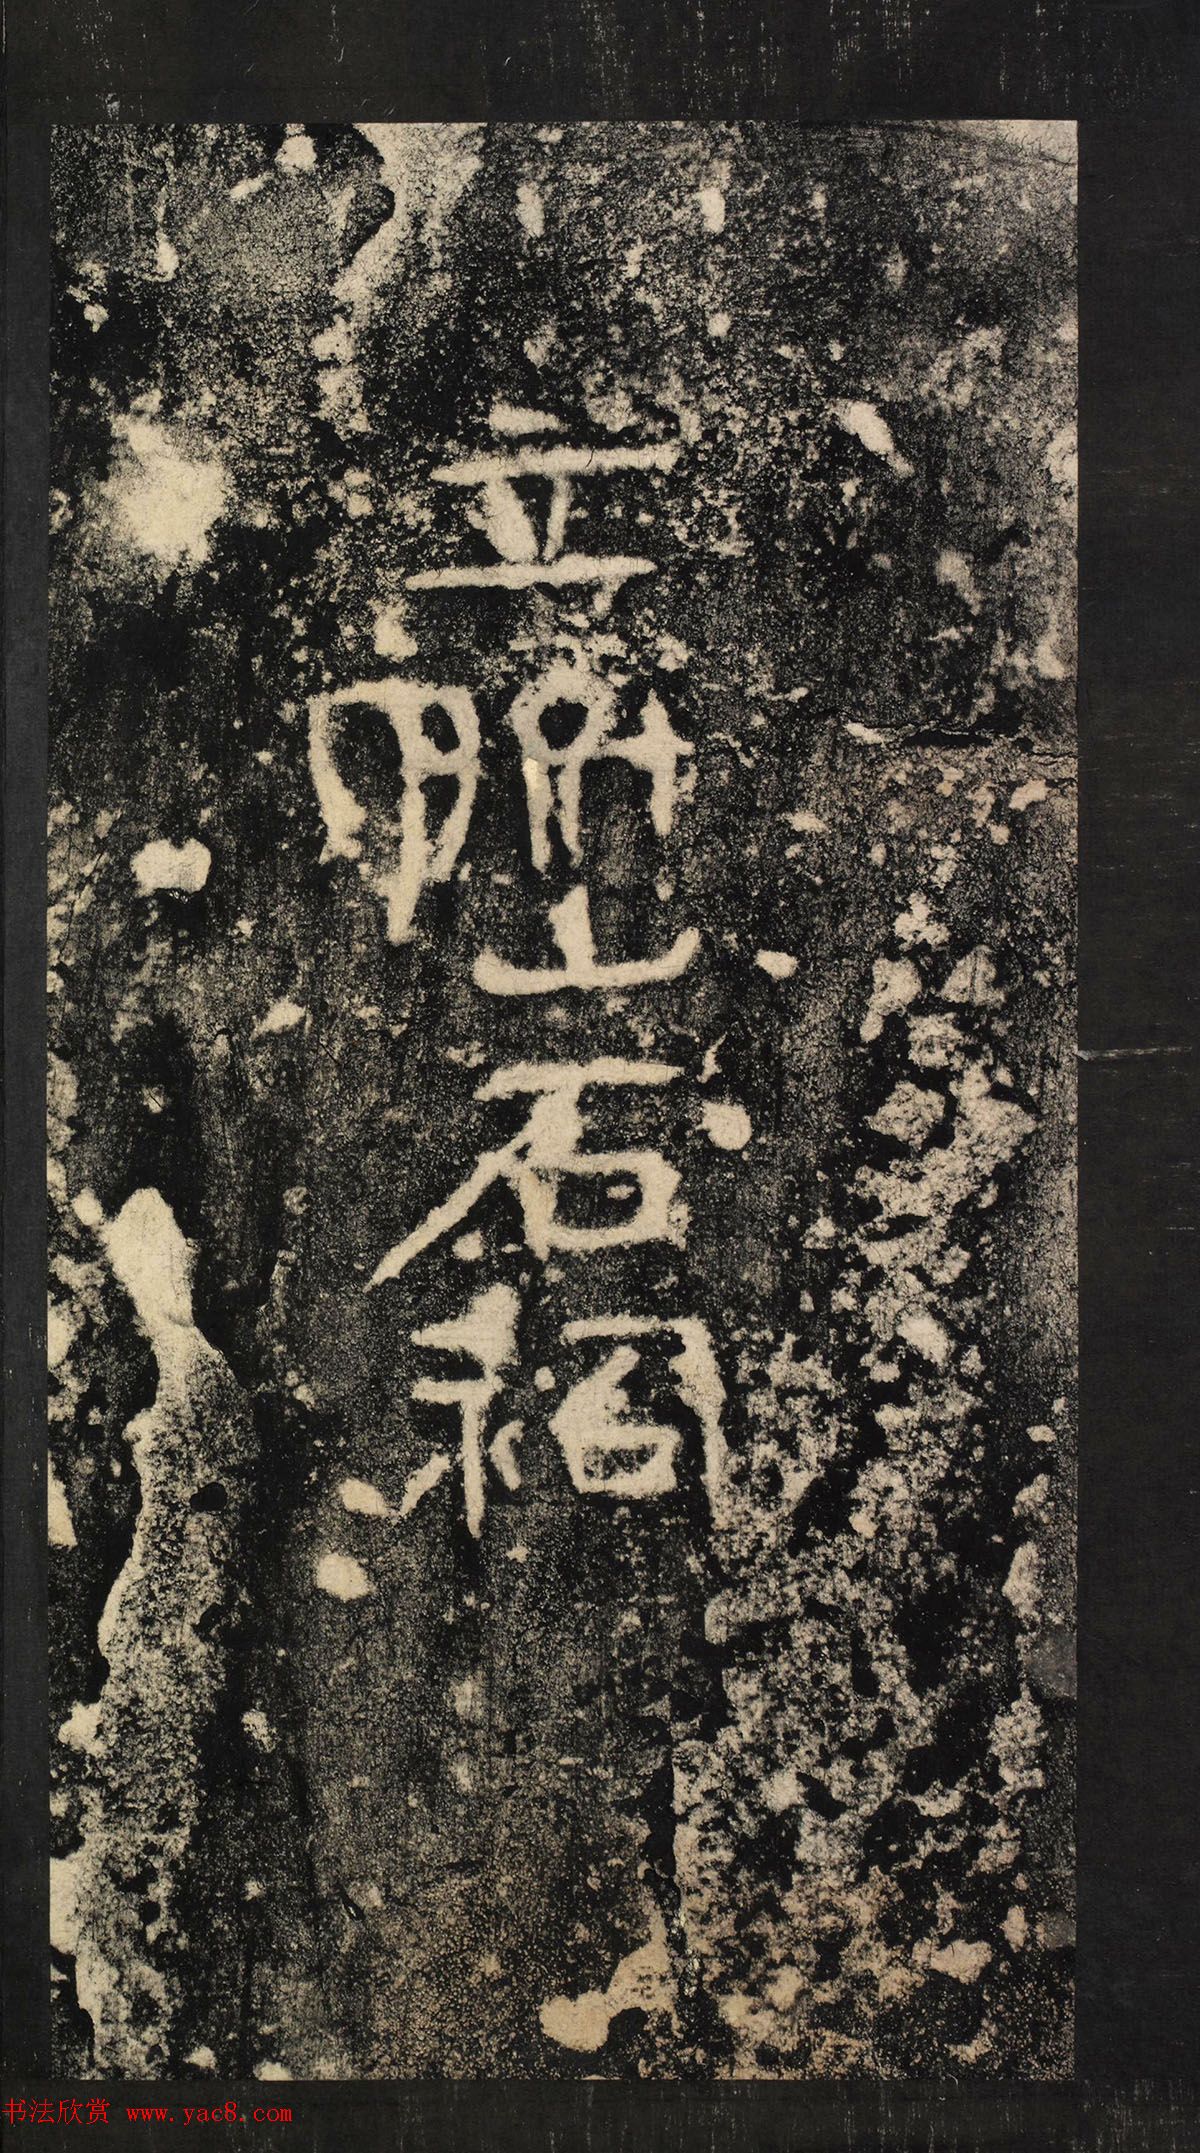 立山石祠
书法欣赏 www.yac8.com